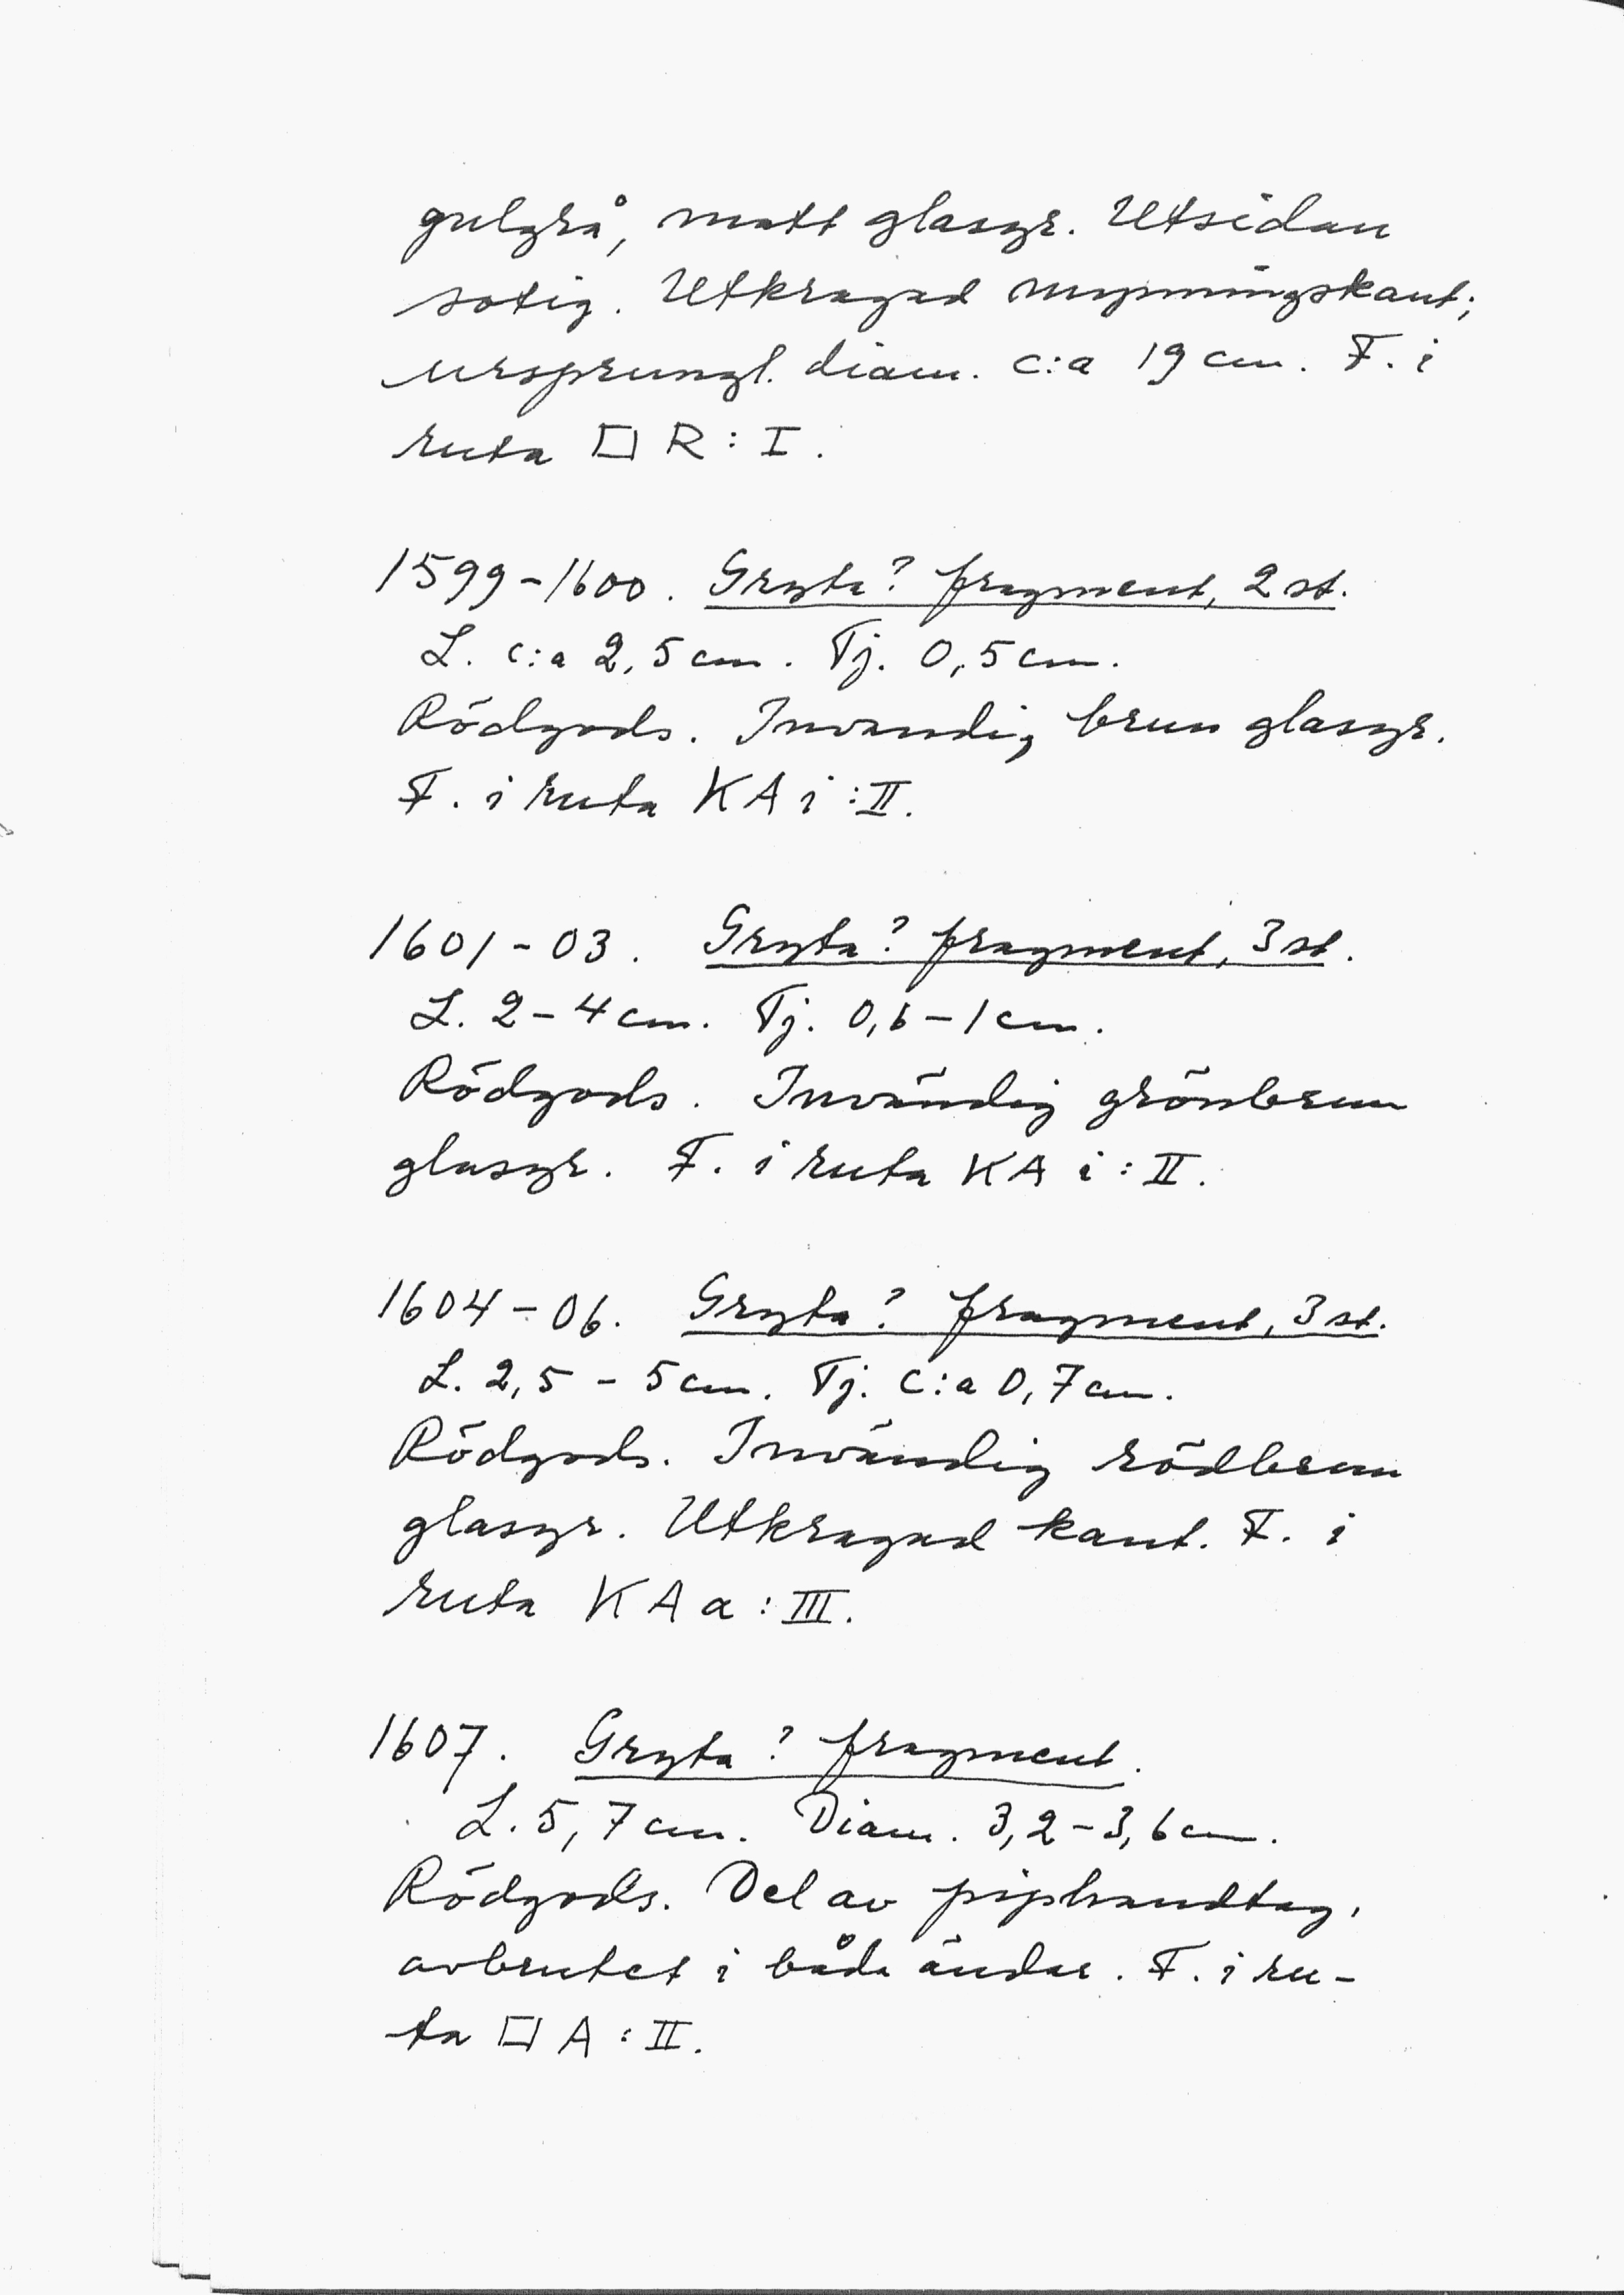 gulgrå, matt glasyr. Utsidan
sotig. Utkragad mynningskant;
ursprungl. diam. c:a 19 cm. F. i
ruta □ R : I.
1599-1600. Gryta? fragment, 2 st.
L. c:a 2,5 cm. Tj. 0,5 cm.
Rödgods. Invändig brun glasyr.
F. i ruta KA i : II.
1601-03. Gryta? fragment, 3 st.
L. 2-4 cm. Tj. 0,6-1 cm.
Rödgods. Invändig grönbrun
glasyr. F. i ruta KA i : II.
1604-06. Gryta? fragment, 3 st.
L. 2,5 - 5 cm. Tj. c:a 0,7 cm.
Rödgods. Invändig rödbrun
glasyr. Utkragad kant. F. i
ruta KA a : III.
1607. Gryta? fragment.
L. 5,7 cm. Diam. 3,2-3,6 cm.
Rödgods. Del av piphandtag,
avbrutet i båda ändar. F. i ru-
ta □ A : II.